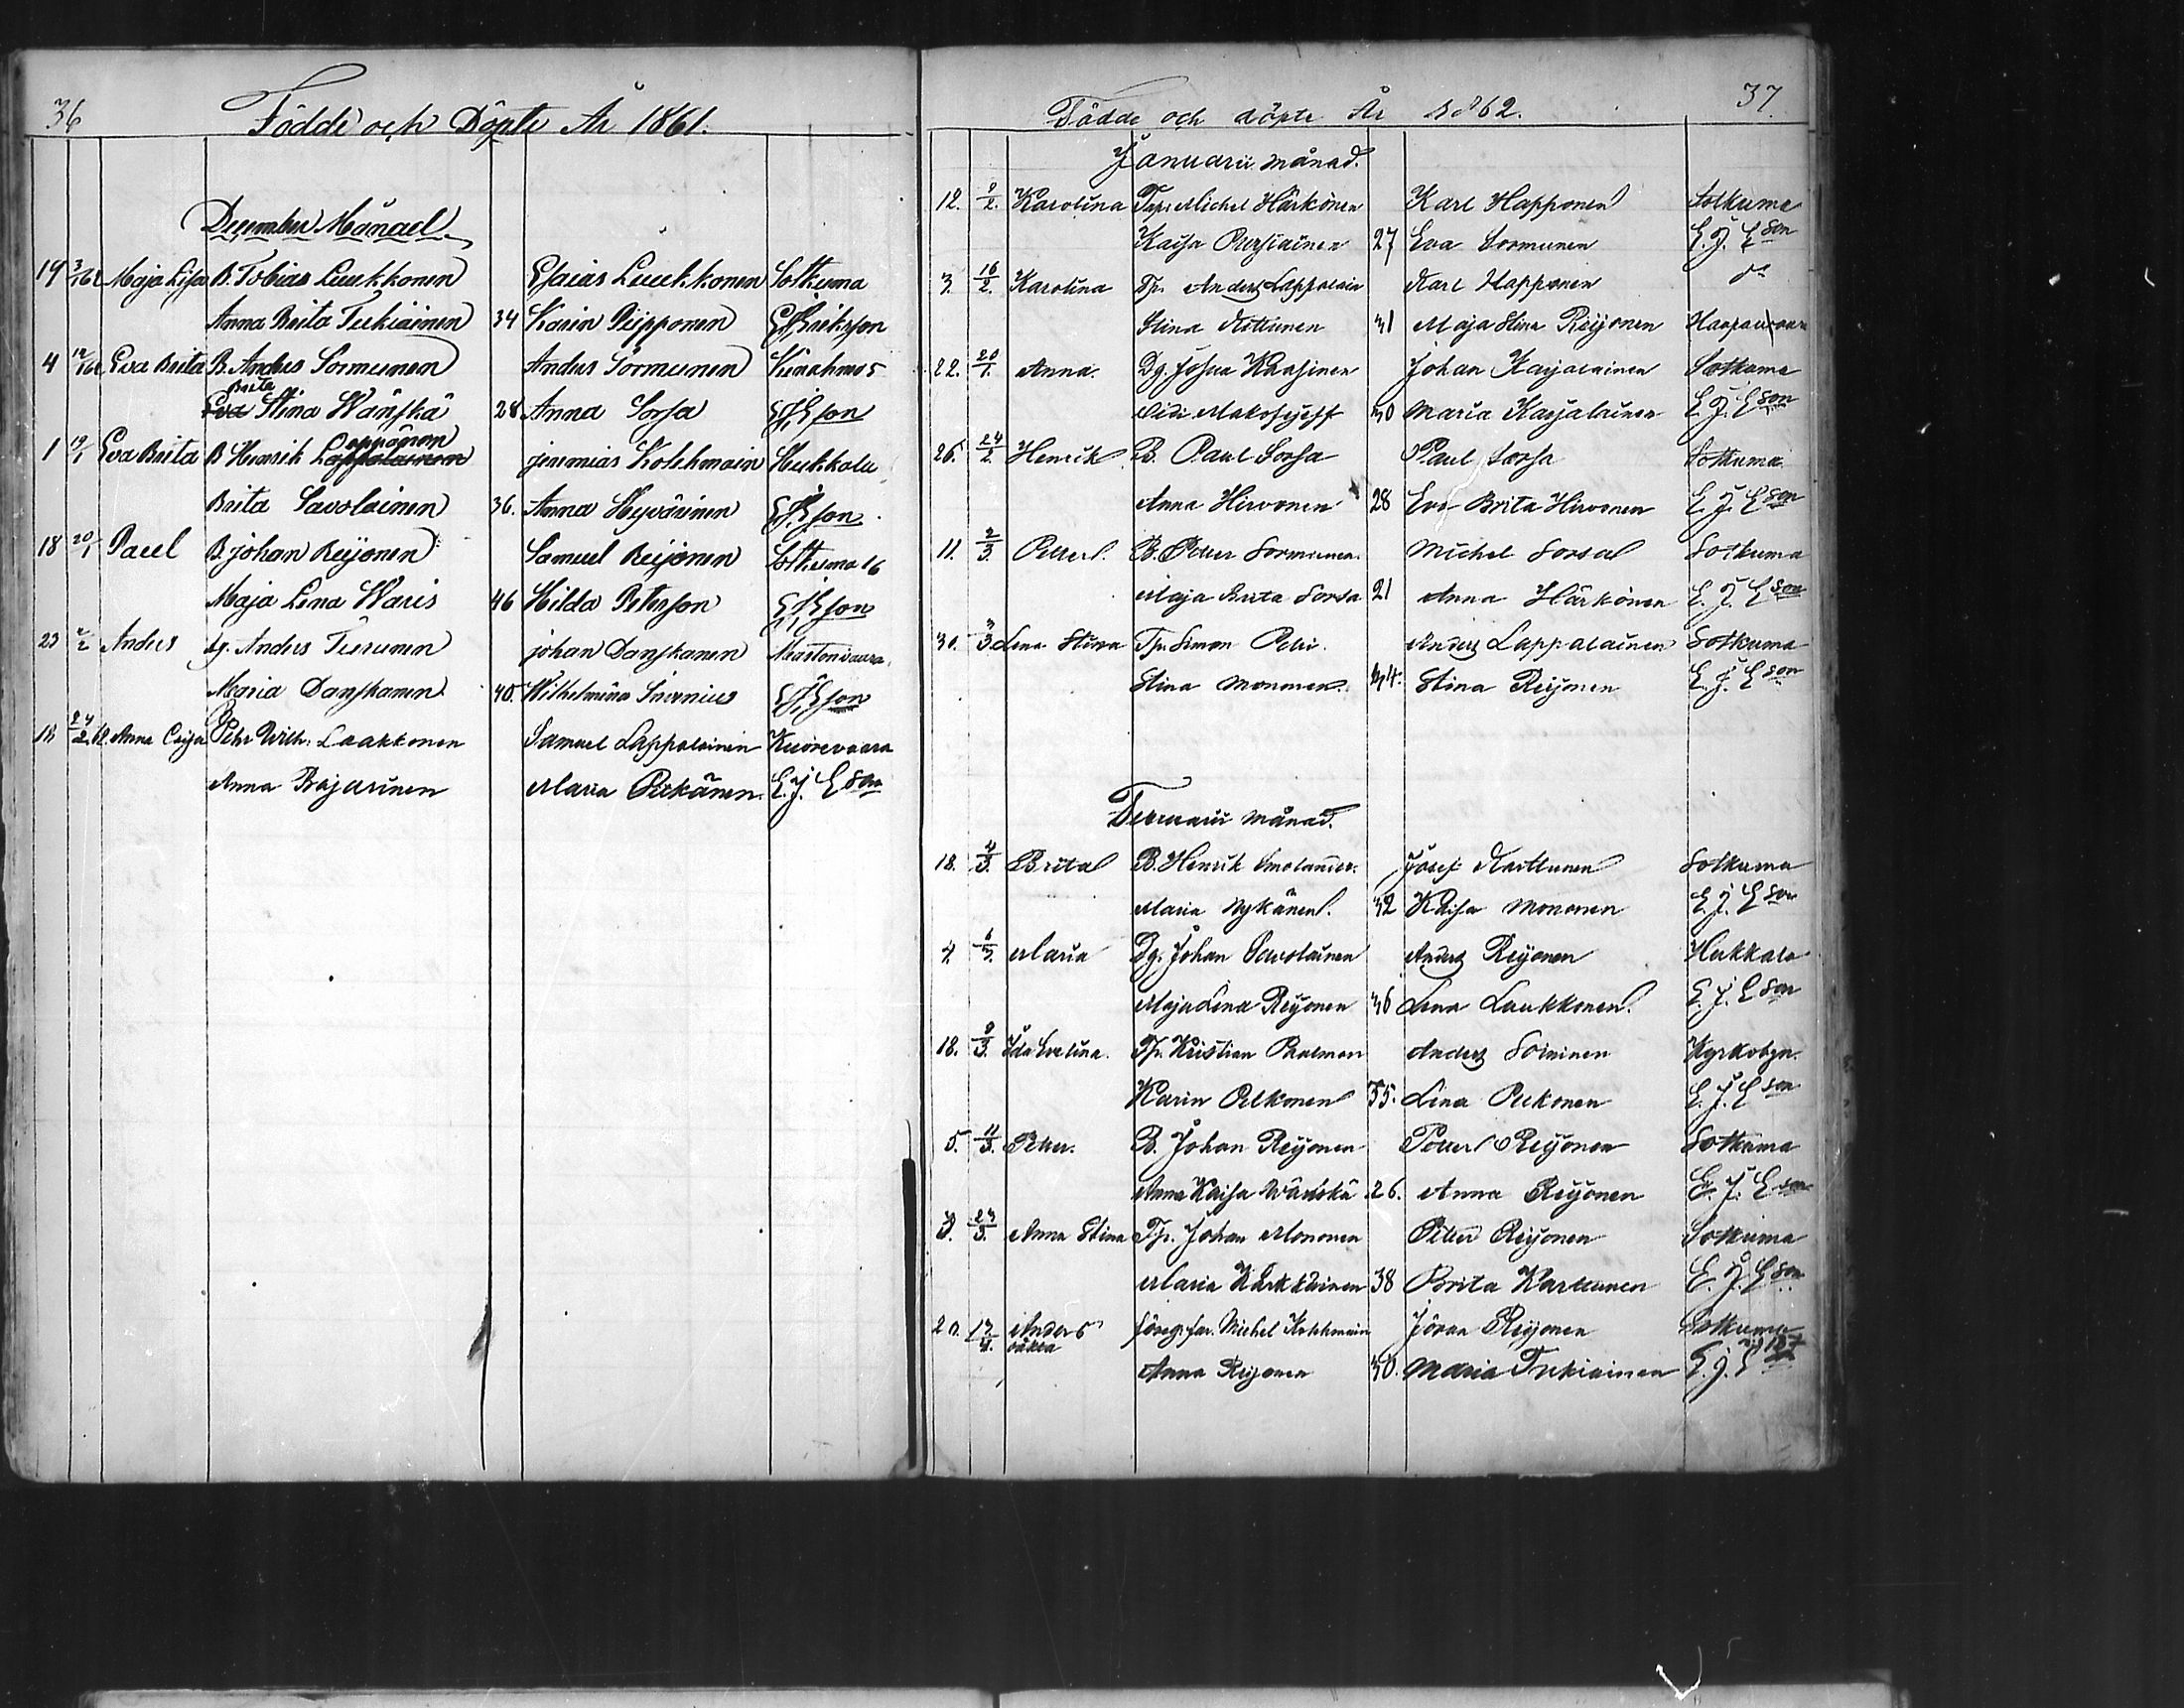 36
Födde och Döpte År 1861.
December Månad
19 3/1 62 Maja Lisa B. Tobias Luukkonen Esaias Luukkonen Sotkuma
Anna Brita Tukiainen 34 Karin Piipponen EJErikson
4 12/1 62 Eva Brita B. Anders Sormunen Anders Sormunen Kinahmo 5
Brita
Eva Stina Wänskä 28 Anna Sorsa EJEson
1 19/1 Eva Brita B Henrik Lappalainen jeremias Kolehmain Hukkala
Brita Savolainen 36. Anna Hyvärinen EJEson.
18 20/1 Paul B. johan Reijonen Samuel Reijonen Sotkuma 16
Maja Lena Waris 46 Hilda Peterson EJEson
23 2/2 Anders Dg. Anders Turunen johan Danskanen
Maria Danskanen 40. Wilhelmina EJEson
18 24/2 62 Anna Caisa Petr Wilh: Laakkonen Samuel Lappalainen Kuorevaara
Anna Pajarinen Maria Pitkänen. E. J. Eson
37.
Födde och döpte År 1862.
Januarii månad.
12. 2/2. Karolina Michel Härkönen Karl Happonen Sotkuma
Kaisa Pursiainen 27 Eva Sormunen E. J. Eson
3. 16/2. Karolina Tp. Anders Lappalain Karl Happonen do
Stina 31 Maja Stina Reijonen Haapavaara
22. 20/1. Anna. Dg. Johan Johan Karjalainen Sotkuma
30 Maria Karjalainen E. J. Eson
26. 24/2 Henrik B. Paul Sorsa Paul Sorsa Sotkuma
Anna Hirvonen 28 Eva Brita Hirvonen E. J. Eson
11. 2/3 Petter B. Petter Sormunen. Michel Sorsa Sotkuma
Maja Brita Sorsa 21 Anna Härkönen E. J. Eson
30. 3/3 Lena Stina Tp. Simon Anders Lappalainen Sotkuma
Stina Mononen. 34. Stina Reijonen E. J. Eson
Februarii månad.
18. 4/3. Brita B. Henrik Smolander. Josef Karttunen Sotkuma
Maria Nykänen. 32 Kaisa Mononen E. J. Eson
4. 6/3. Maria Dg. Johan Savolainen Anders Reijonen Hukkala
Maja Lena Reijonen 36 Lena Laukkonen. E. J. Eson
18. 9/3. Ida Evelina. Tp. Kristian Palmen Anders Soininen Kyrkobyn.
Karin Pelkonen 35. Lina Pelkonen E. J. Eson
5. 11/3. Petter. B. Johan Reijonen Petter Reijonen Sotkuma
Anna Kaisa Wänskä 26. Anna Reijonen E. J. Eson
3. 23/3. Anna Stina Tp. Johan Mononen Petter Reijonen Sotkuma
Maria Kärkkäinen 38 Brita Karttunen E. J. Eson
20. 13/4. Anders Michel Kolehmain Jöran Reijonen Sotkuma
oäkta
Anna Reijonen 30. Maria Tukiainen E. J. E